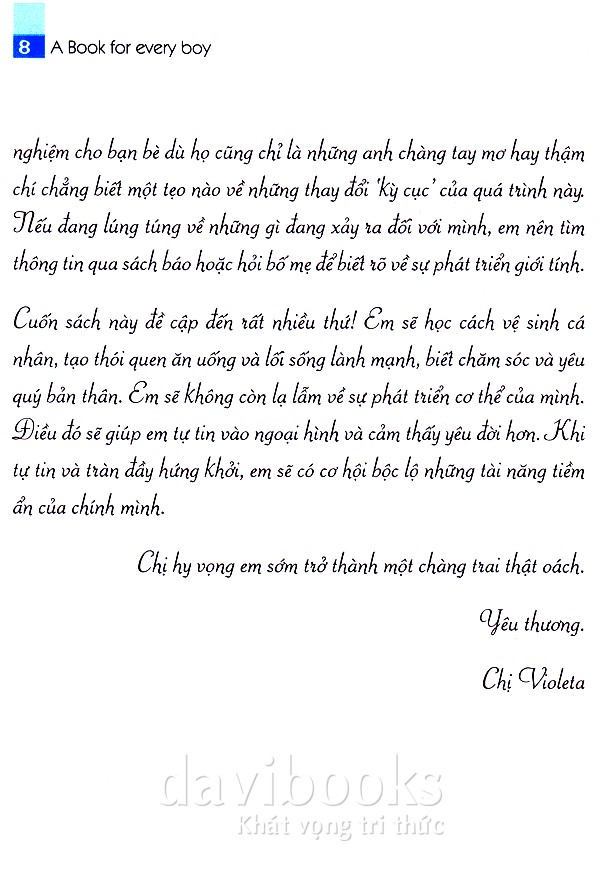 8 A Book for every boy
nghiệm cho bạn bè dù họ cũng chỉ là những anh chàng tay mơ hay thậm
chí chẳng biết một tẹo nào về những thay đổi 'kỳ cục' của quá trình này.
Nếu đang lúng túng về những gì đang xảy ra đối với mình, em nên tìm
thông tin qua sách báo hoặc hỏi bố mẹ để biết rõ về sự phát triển giới tính.
Cuốn sách này đề cập đến rất nhiều thứ! Em sẽ học cách vệ sinh cá
nhân, tạo thói quen ăn uống và lối sống lành mạnh, biết chăm sóc và yêu
quý bản thân. Em sẽ không còn lạ lẫm về sự phát triển cơ thể của mình.
Điều đó sẽ giúp em tự tin vào ngoại hình và cảm thấy yêu đời hơn. Khi
tự tin và tràn đầy hứng khởi, em sẽ có cơ hội bộc lộ những tài năng tiềm
ẩn của chính mình.
Chị hy vọng em sớm trở thành một chàng trai thật oách.
Yêu thương.
Chị Violeta
davibooks
Khát vọng tri thức